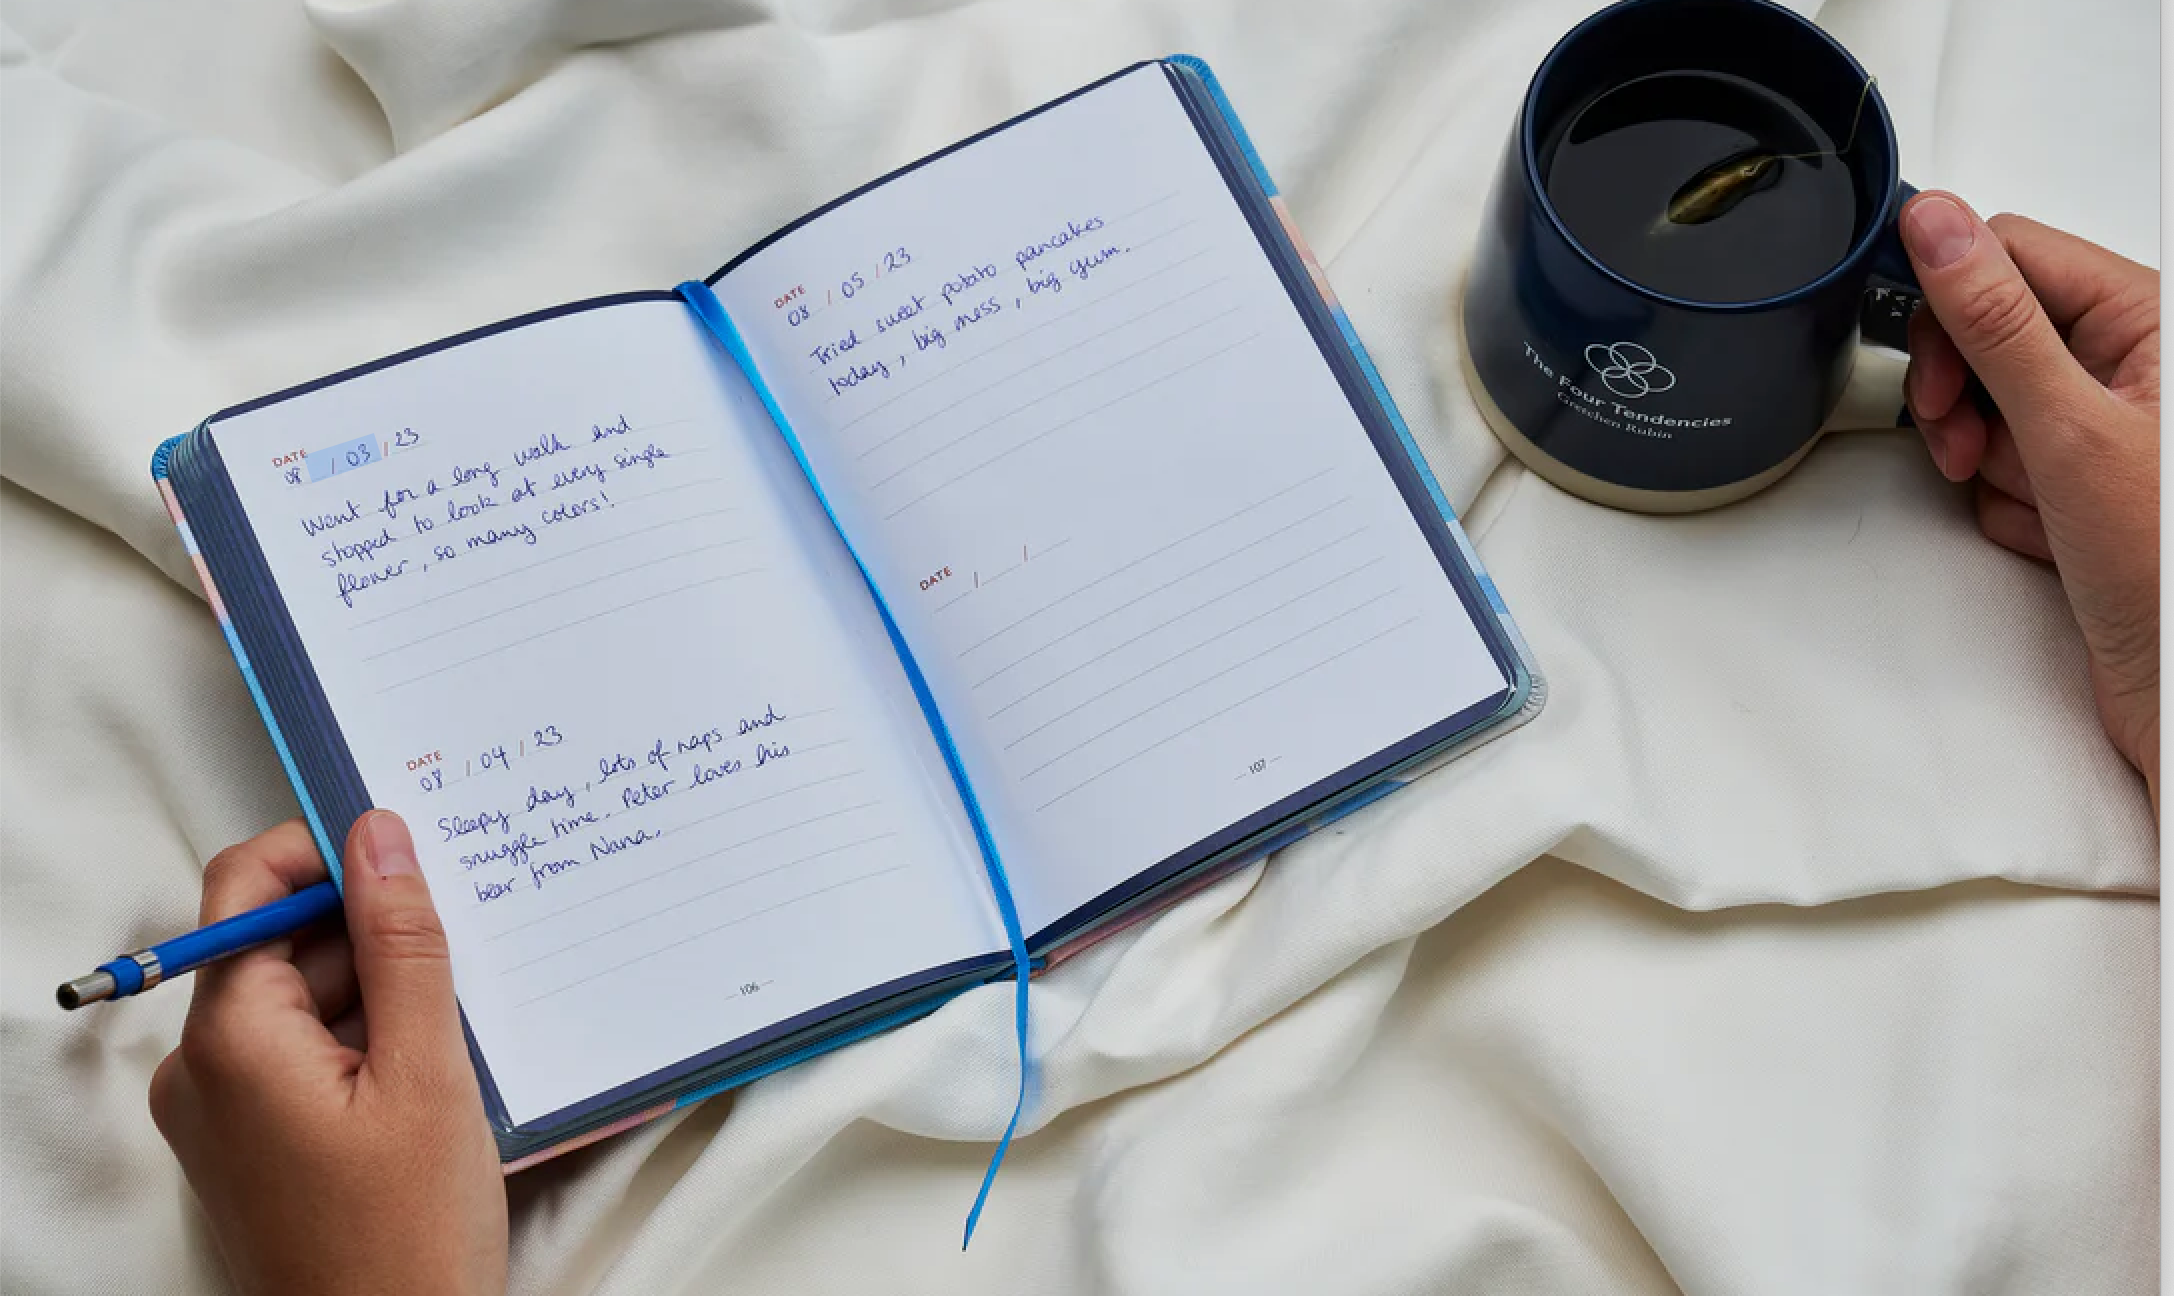 DATE
08 / 03 / 23
Went for a long walk and
stopped to look at every single
flower, so many colors!
DATE
08 / 04 / 23
Sleepy day, lots of naps and
snuggle time. Peter loves his
bear from Nana.
—106—
DATE
08 / 05 / 23
Tried sweet potato pancakes
today, big mess, big yum.
DATE
/ /
—107—
The Four Tendencies
Gretchen Rubin